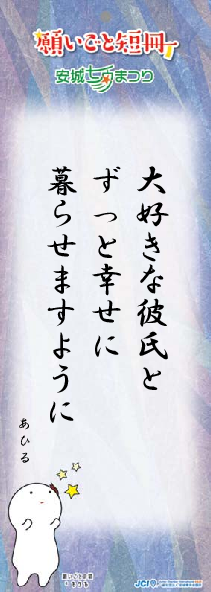 願いごと短冊
安城七夕まつり
大好きな彼氏と
ずっと幸せに
暮らせますように
あひる
願いごと短冊
JCI